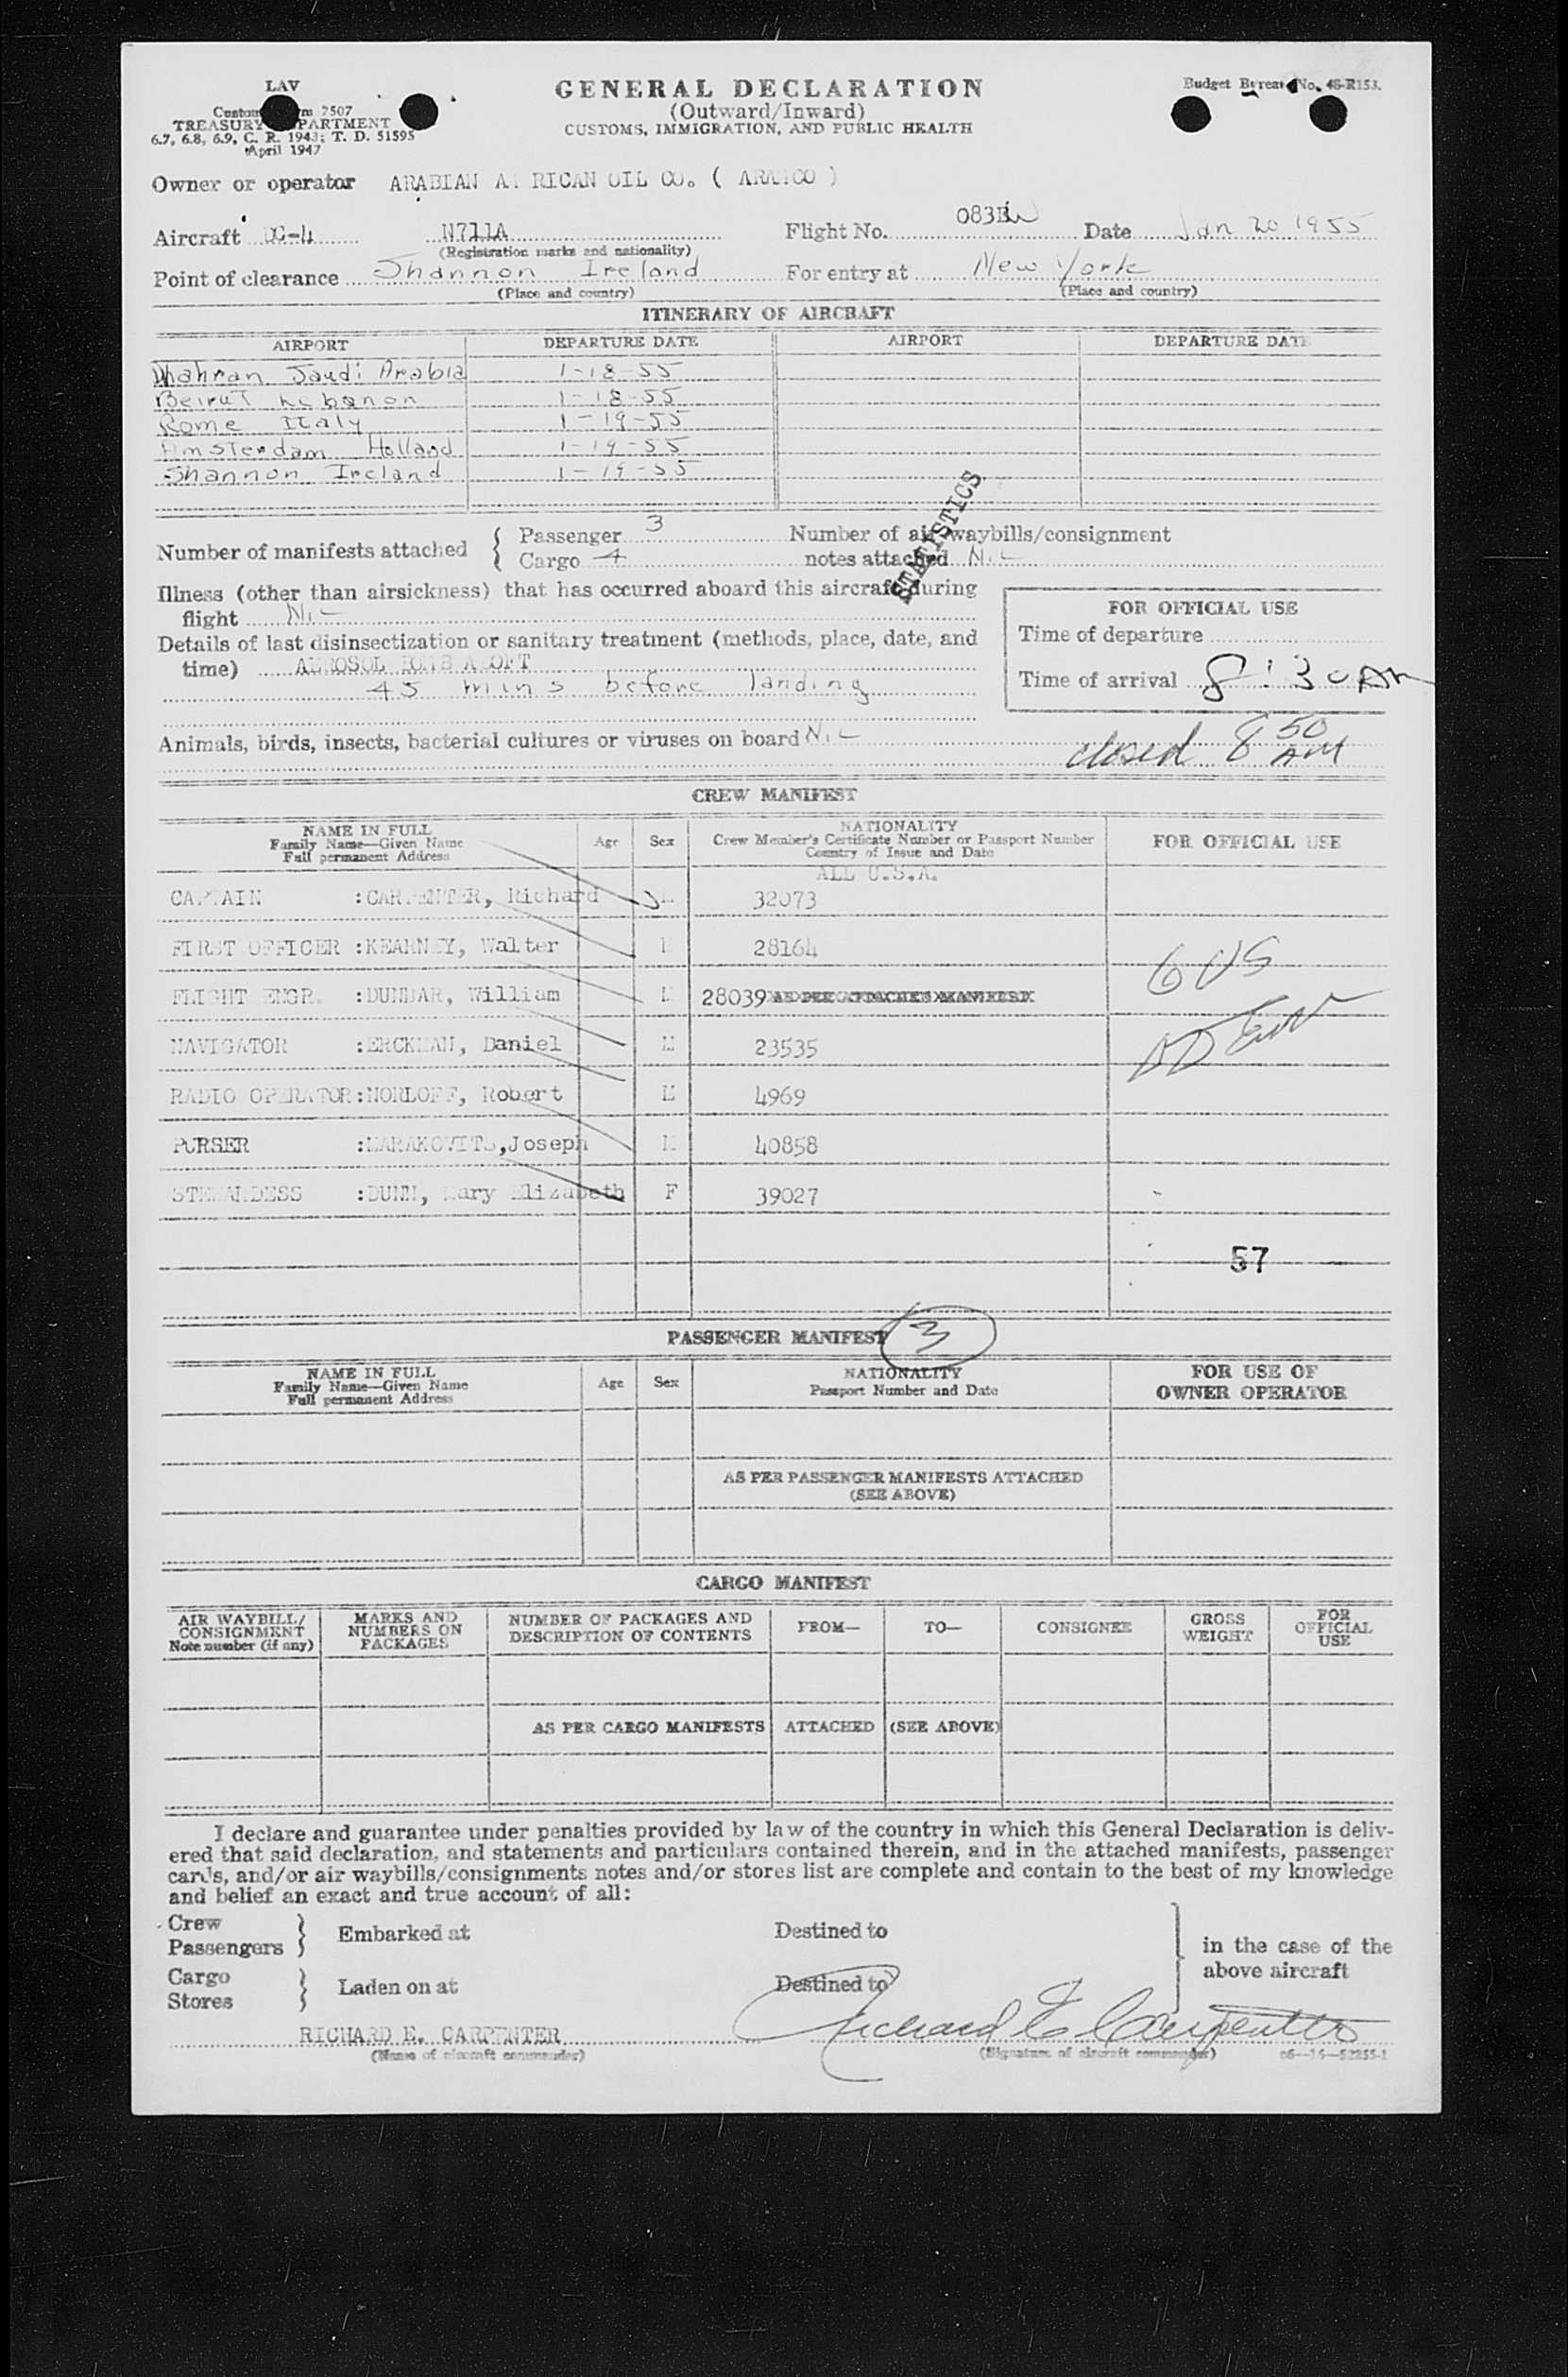 LAV
Customs Form 7507
TREASURY DEPARTMENT
6.7, 6.8, 6.9, C. R. 1943; T. D. 51595
April 1947
GENERAL DECLARATION
(Outward/Inward)
CUSTOMS, IMMIGRATION, AND PUBLIC HEALTH
Budget Bureau No. 48-R153.
Owner or operator ARABIAN A RICAN OIL CO. ( ARAMCO )
Aircraft DC-4 N711A Flight No. 083EW Date Jan 20 1955
(Registration marks and nationality)
Point of clearance Shannon Ireland For entry at New York
(Place and country) (Place and country)
ITINERARY OF AIRCRAFT
AIRPORT DEPARTURE DATE AIRPORT DEPARTURE DATE
Dhahran Saudi Arabia 1-18-55
Beirut Lebanon 1-18-55
Rome Italy 1-19-55
Amsterdam Holland 1-19-55
Shannon Ireland 1-19-55
STATISTICS
Number of manifests attached { Passenger 3 Number of air waybills/consignment
Cargo 4 notes attached NIL
Illness (other than airsickness) that has occurred aboard this aircraft during
flight NIL
FOR OFFICIAL USE
Details of last disinsectization or sanitary treatment (methods, place, date, and
Time of departure
time) AEROSOL BOMB ALOFT
45 mins before landing
Time of arrival 8:30 AM
Animals, birds, insects, bacterial cultures or viruses on board NIL
closed 8 50 AM
CREW MANIFEST
NAME IN FULL
Family Name—Given Name
Full permanent Address
Age Sex
NATIONALITY
Crew Member's Certificate Number or Passport Number
Country of Issue and Date
FOR OFFICIAL USE
ALL U.S.A.
CAPTAIN :CARPENTER, Richard M 32073
FIRST OFFICER :KEARNEY, Walter M 28164
6 US
FLIGHT ENGR. :DUNBAR, William M 28039
NAVIGATOR :ERCKMAN, Daniel M 23535
RADIO OPERATOR:NORLOFF, Robert M 4969
PURSER :MARAKOVITS,Joseph M 40858
STEWARDESS :DUNN, Mary Elizabeth F 39027
57
PASSENGER MANIFEST 3
NAME IN FULL
Family Name—Given Name
Full permanent Address
Age Sex
NATIONALITY
Passport Number and Date
FOR USE OF
OWNER OPERATOR
AS PER PASSENGER MANIFESTS ATTACHED
(SEE ABOVE)
CARGO MANIFEST
AIR WAYBILL/
CONSIGNMENT
Note number (if any)
MARKS AND
NUMBERS ON
PACKAGES
NUMBER OF PACKAGES AND
DESCRIPTION OF CONTENTS
FROM— TO— CONSIGNEE
GROSS
WEIGHT
FOR
OFFICIAL
USE
AS PER CARGO MANIFESTS ATTACHED (SEE ABOVE)
I declare and guarantee under penalties provided by law of the country in which this General Declaration is deliv-
ered that said declaration, and statements and particulars contained therein, and in the attached manifests, passenger
cards, and/or air waybills/consignments notes and/or stores list are complete and contain to the best of my knowledge
and belief an exact and true account of all:
Crew
Passengers } Embarked at Destined to
in the case of the
above aircraft
Cargo
Stores } Laden on at Destined to
RICHARD E. CARPENTER Richard E Carpenter
(Name of aircraft commander) (Signature of aircraft commander) 06—16—52255-1